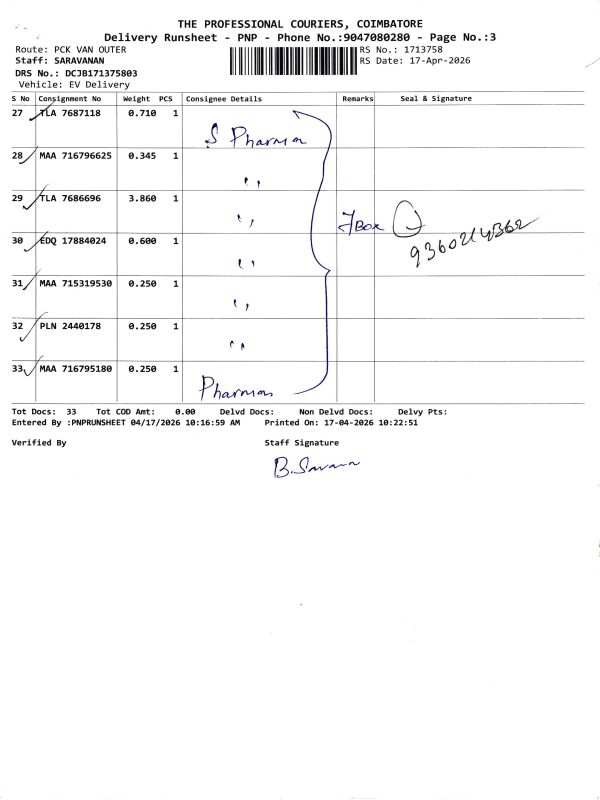 THE PROFESSIONAL COURIERS, COIMBATORE
Delivery Runsheet - PNP - Phone No.:9047080280 - Page No.:3
Route: PCK VAN OUTER
RS No.: 1713758
Staff: SARAVANAN
RS Date: 17-Apr-2026
DRS No.: DCJB171375803
Vehicle: EV Delivery
S No Consignment No Weight PCS Consignee Details Remarks Seal & Signature
27 TLA 7687118 0.710 1 S Pharma
28 MAA 716796625 0.345 1 ,,
29 TLA 7686696 3.860 1 ,, 7 Box 9360214362
30 EDQ 17884024 0.600 1 ,,
31 MAA 715319530 0.250 1 ,,
32 PLN 2440178 0.250 1 ,,
33 MAA 716795180 0.250 1
Tot Docs: 33 Tot COD Amt: 0.00 Delvd Docs: Non Delvd Docs: Delvy Pts:
Entered By :PNPRUNSHEET 04/17/2026 10:16:59 AM Printed On: 17-04-2026 10:22:51
Verified By Staff Signature